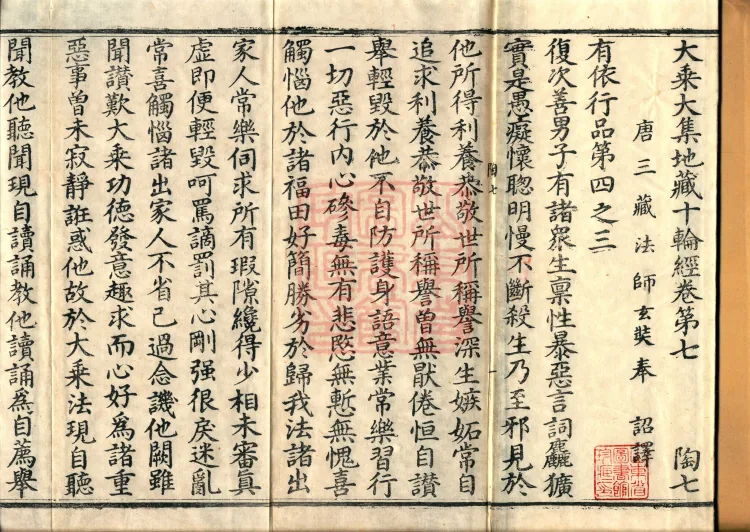 大乘大集地藏十輪經卷第七 陶七
唐三藏法師玄奘奉 詔譯
有依行品第四之三
復次善男子有諸衆生禀性暴惡言詞麤獷
實是愚癡懷聰明慢不斷殺生乃至邪見於
陶七 一
他所得利養恭敬世所稱譽深生嫉妬常自
追求利養恭敬世所稱譽曾無猒倦恒自讃
舉輕毀於他不自防護身語意業常樂習行
一切惡行内心磣毒無有悲愍無慚無愧喜
觸惱他於諸福田好簡勝劣於歸我法諸出
家人常樂伺求所有瑕隙纔得少相未審眞
虚即便輕毀呵罵謫罰其心剛强很戾迷亂
常喜觸惱諸出家人不省己過念譏他闕雖
聞讃歎大乘功德發意趣求而心好爲諸重
惡事曾未寂靜誑惑他故於大乘法現自聽
聞教他聽聞現自讀誦教他讀誦爲自薦舉